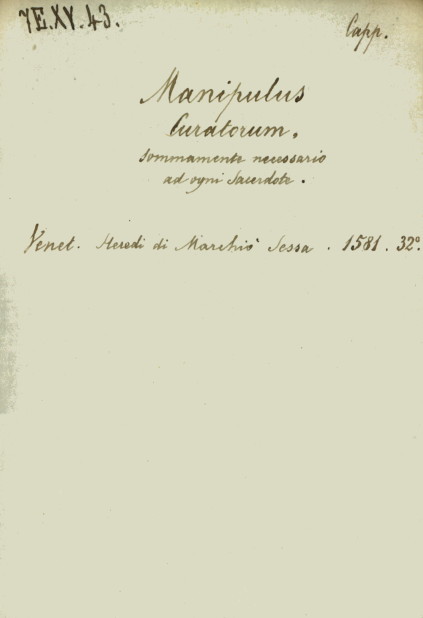 7E.XV.43.
Capp.
Manipulus
Curatorum.
sommamente necessario
ad ogni Sacerdote.
Venet. Heredi di Marchiò Sessa. 1581. 32º.